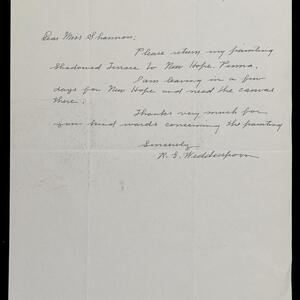 Dear Miss Shannon;
Please return my painting
Shadowed Terrace to New Hope. Penna.
I am leaving in a few
days for New Hope and need the canvas
there.
Thanks very much for
your kind words concerning the painting
Sincerely
R. E. Wedderspoon